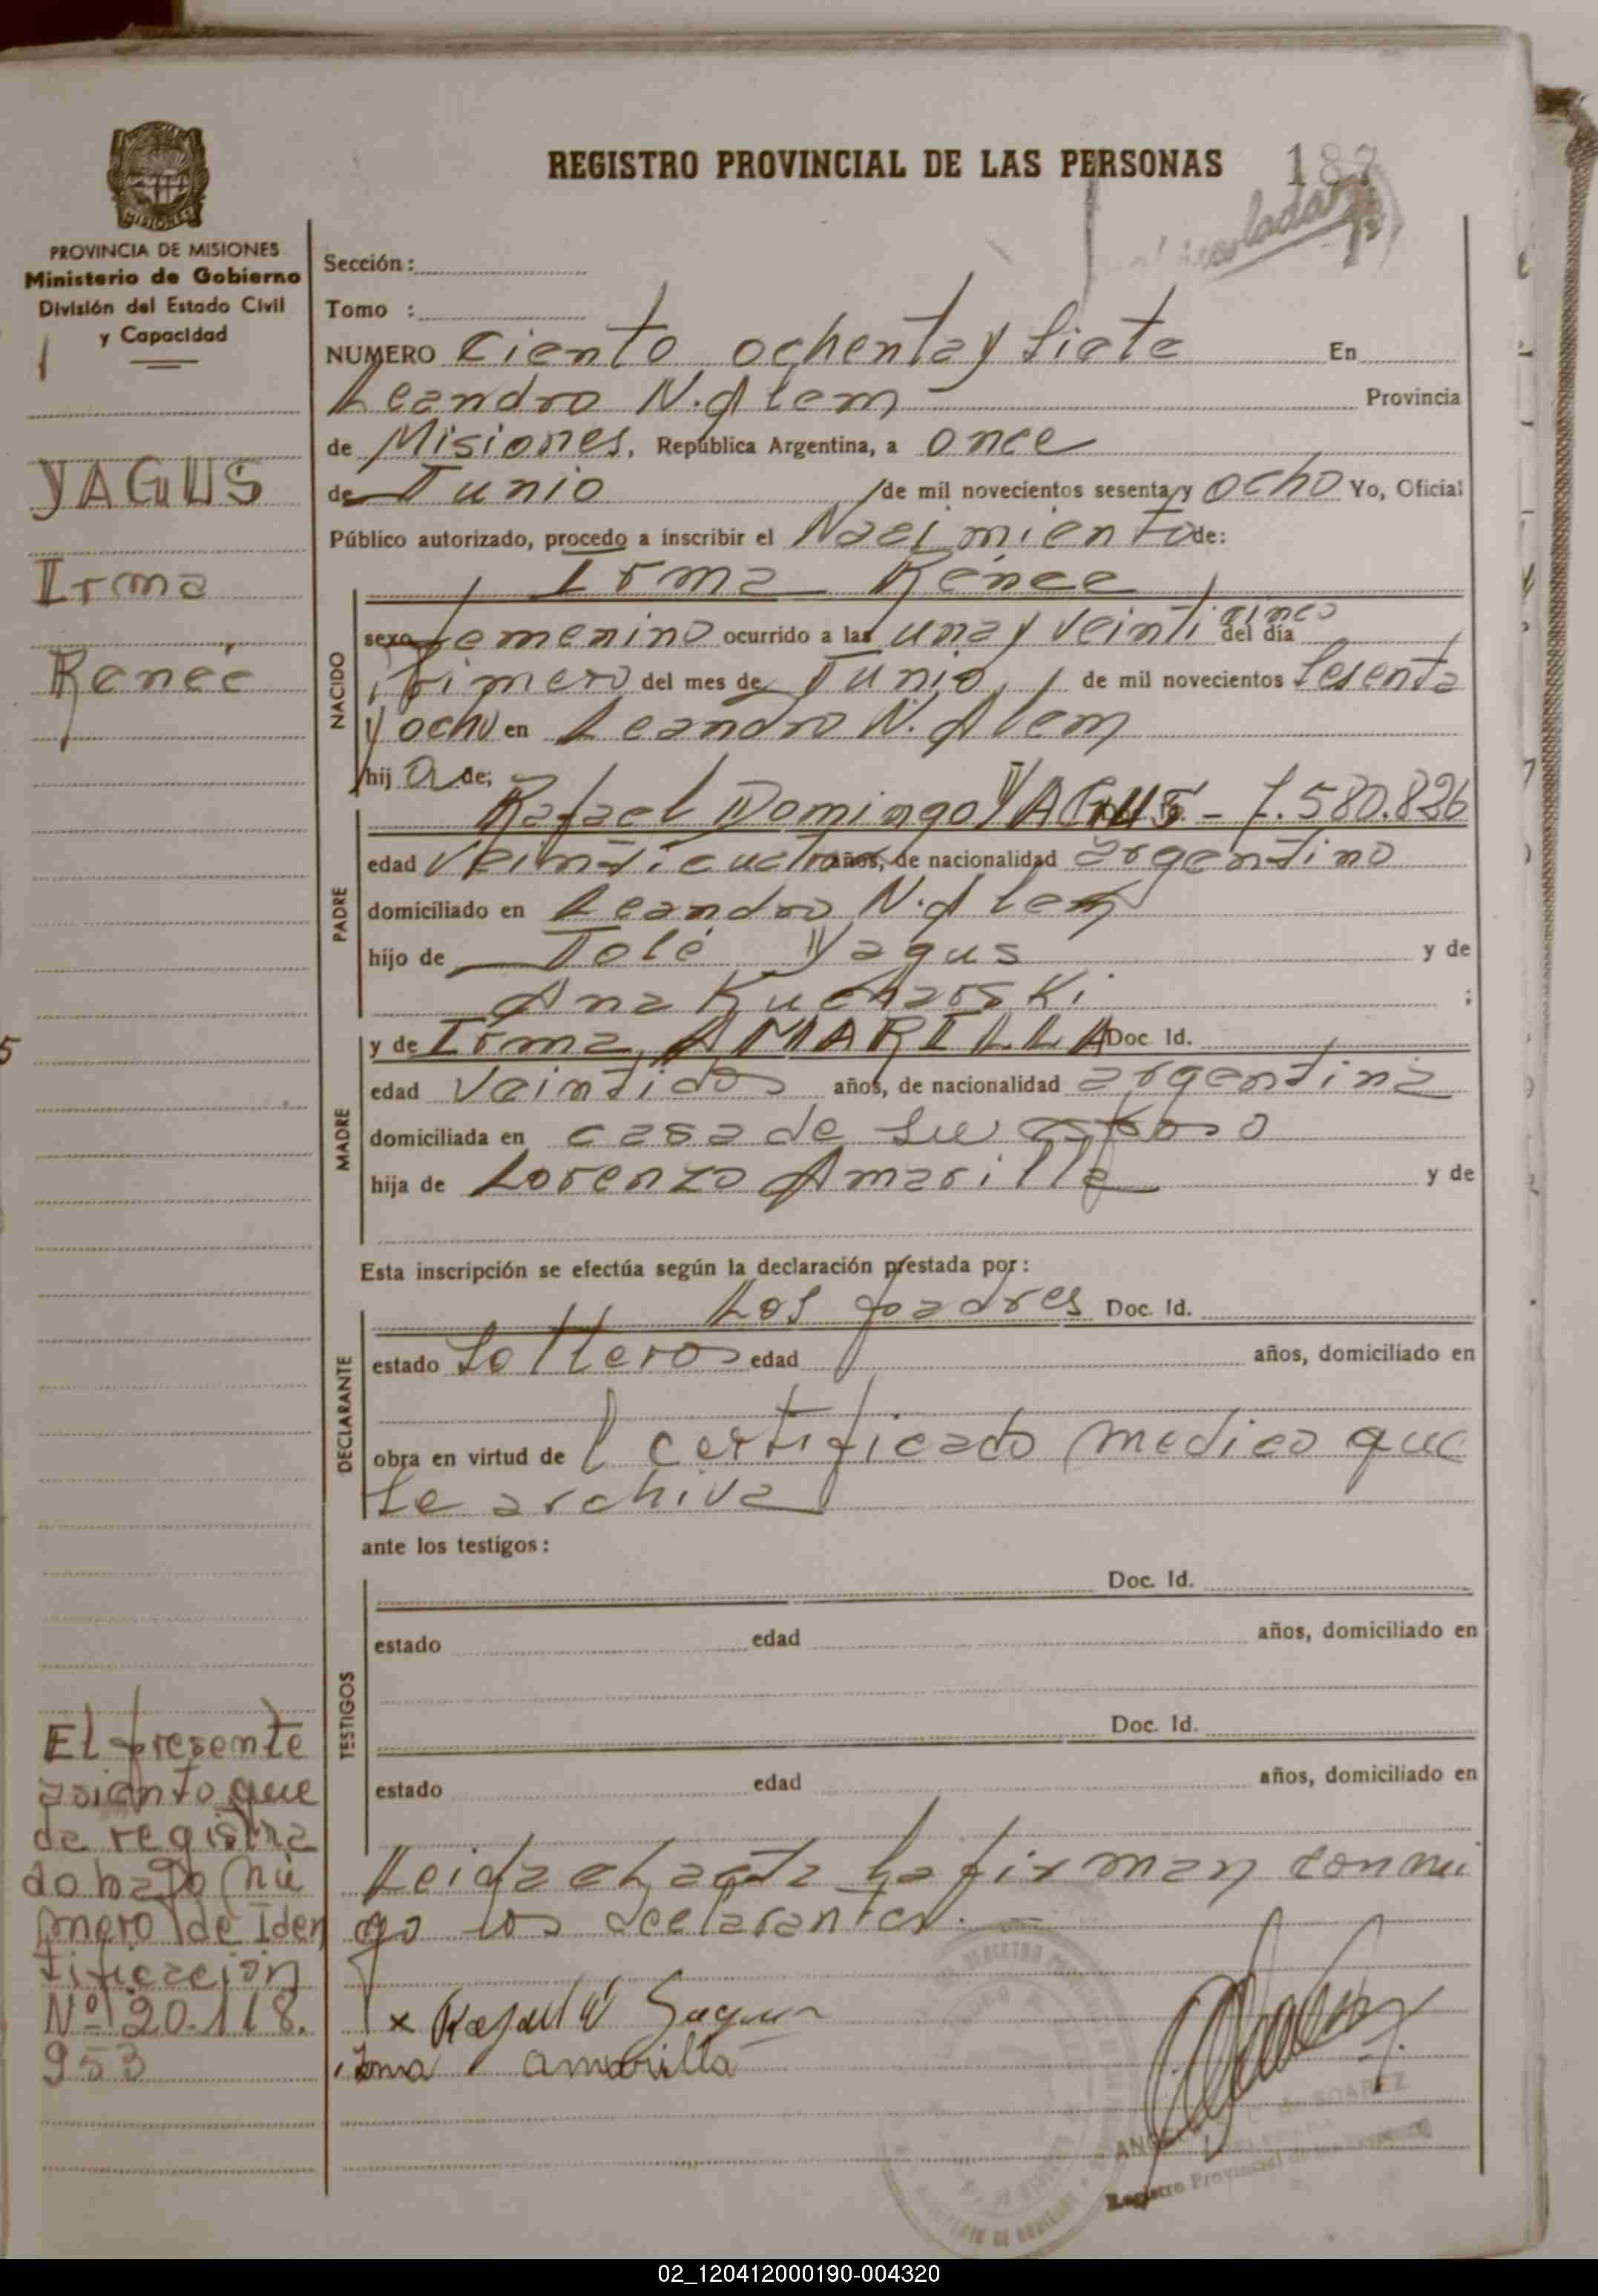 REGISTRO PROVINCIAL DE LAS PERSONAS 187
PROVINCIA DE MISIONES
Ministerio de Gobierno
División del Estado Civil
y Capacidad
YAGUS
Irma
Reneé
El presente
asiento que
da registra
do bajo nú
mero de Iden
tificación
Nº 20.118.
953
Sección:
Tomo :
NUMERO Ciento ochenta y siete En
Leandro N. Alem Provincia
de Misiones, República Argentina, a once
de Junio de mil novecientos sesenta y ocho Yo, Oficial
Público autorizado, procedo a inscribir el Nacimiento de:
Irma Renee
NACIDO
sexo femenino ocurrido a las una y veinticinco del día
primero del mes de Junio de mil novecientos sesenta
y ocho en Leandro N. Alem
hija de;
PADRE
Rafael Domingo YAGUS - 7.580.826
edad veinticuatro años, de nacionalidad argentino
domiciliado en Leandro N. Alem
hijo de José Yagus y de
Ana Kucharski ;
MADRE
y de Irma AMARILLA Doc. Id.
edad veintidos años, de nacionalidad argentina
domiciliada en casa de su esposo
hija de Lorenzo Amarilla y de
Esta inscripción se efectúa según la declaración prestada por:
DECLARANTE
Los padres Doc. Id.
estado solteros edad años, domiciliado en
obra en virtud de l certificado medico que
se archiva
ante los testigos:
TESTIGOS
Doc. Id.
estado edad años, domiciliado en
Doc. Id.
estado edad años, domiciliado en
Leida el acta la firman conmi
go los declarantes.
x Rafael Yagus
Irma amarilla
SOAREZ
Registro Provincial de las
02_120412000190-004320